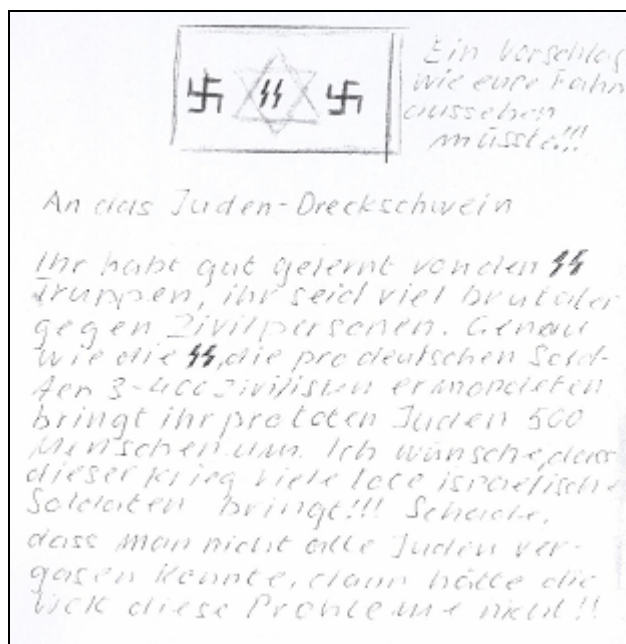 SS
Ein Vorschlag
wie eure Fahn
aussehen
müsste!!!
An das Juden-Dreckschwein
Ihr habt gut gelernt von den SS
truppen, ihr seid viel brutaler
gegen Zivilpersonen. Genau
wie die SS, die pro deutschen Sold-
ten 3-400 Zivilisten ermordeten
bringt ihr pro toten Juden 500
Menschen um. Ich wünsche, dass
dieser Krieg viele tote israelische
Soldaten bringt!!! Schade,
dass man nicht alle Juden ver-
gasen konnte, dann hätte die
diese Probleme nicht!!